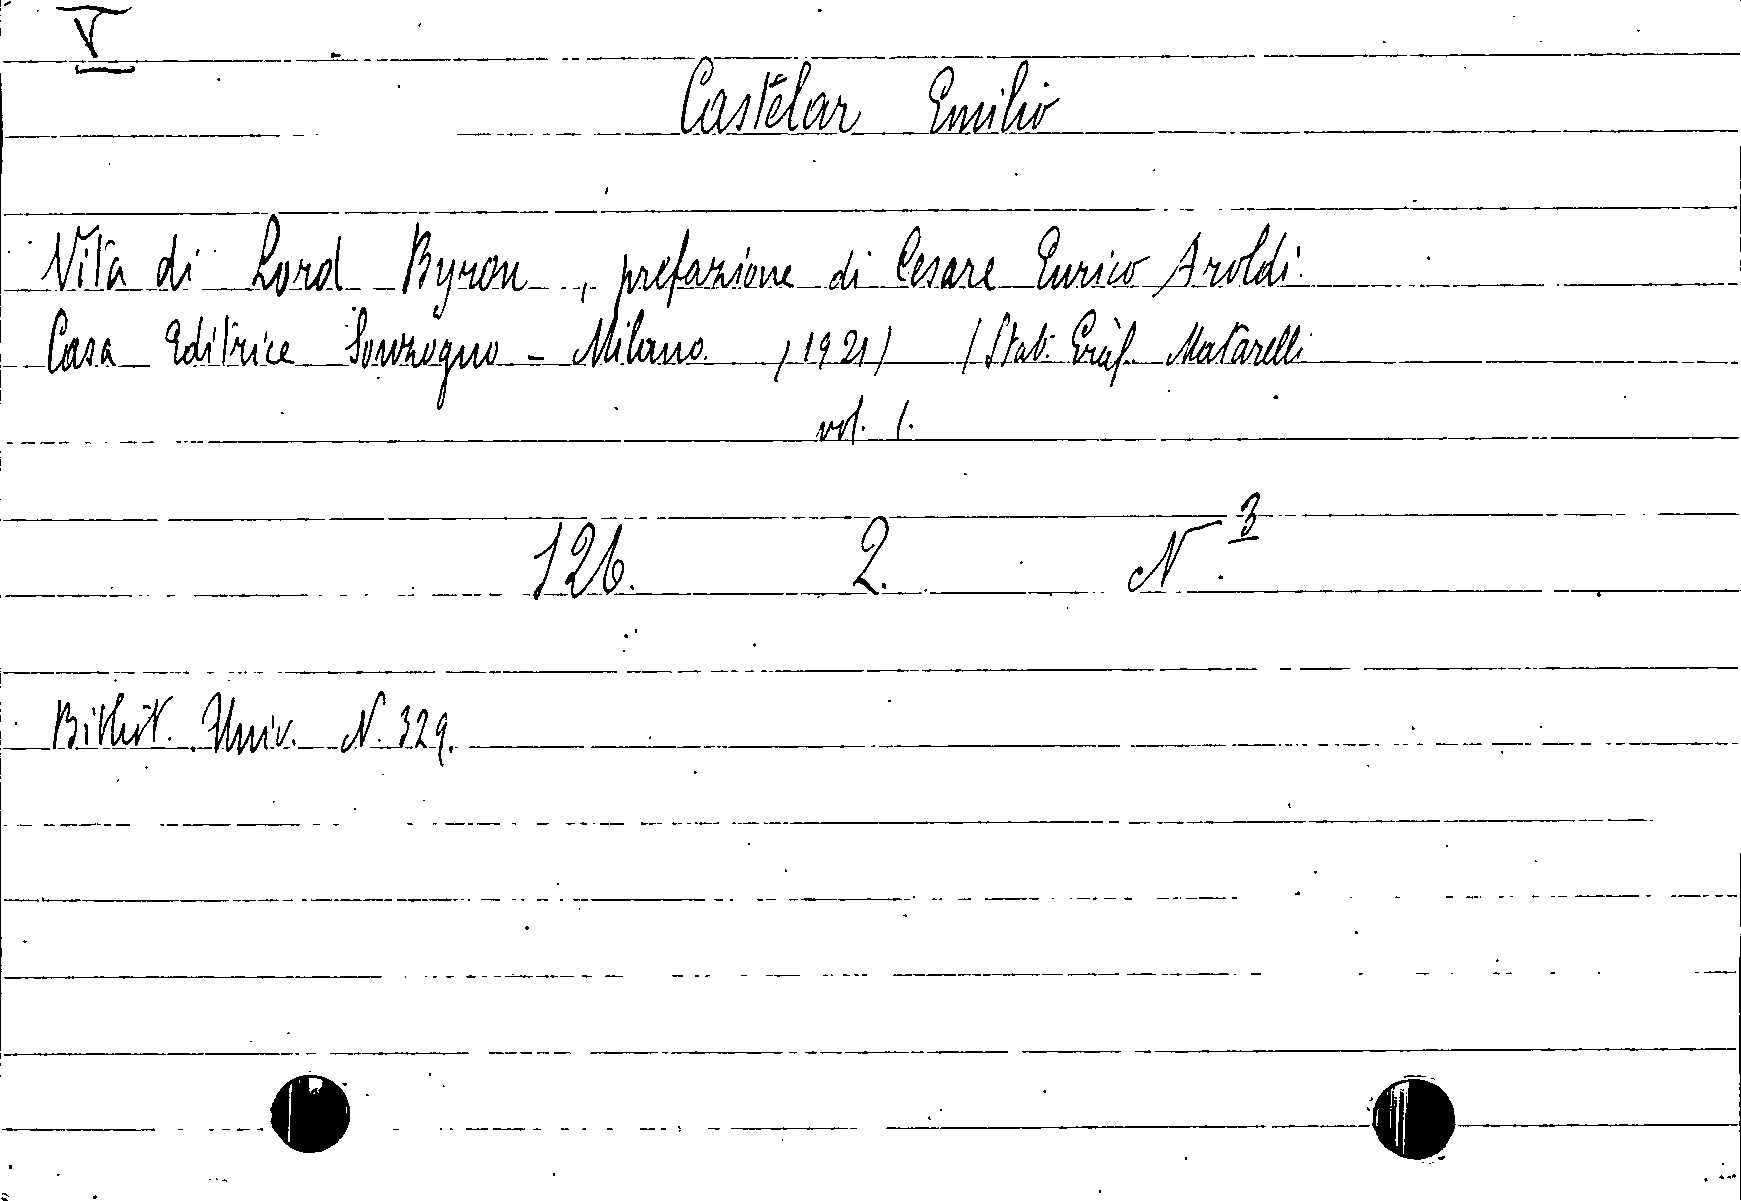 V
Castelar Emilio
Vita di Lord Byron, prefazione di Cesare Enrico Aroldi.
Casa Editrice Sonzogno - Milano. (1921) (Stab. Graf. Matarelli
vol. 1.
126. 2. N. 3
Bibliot. Univ. N. 329.